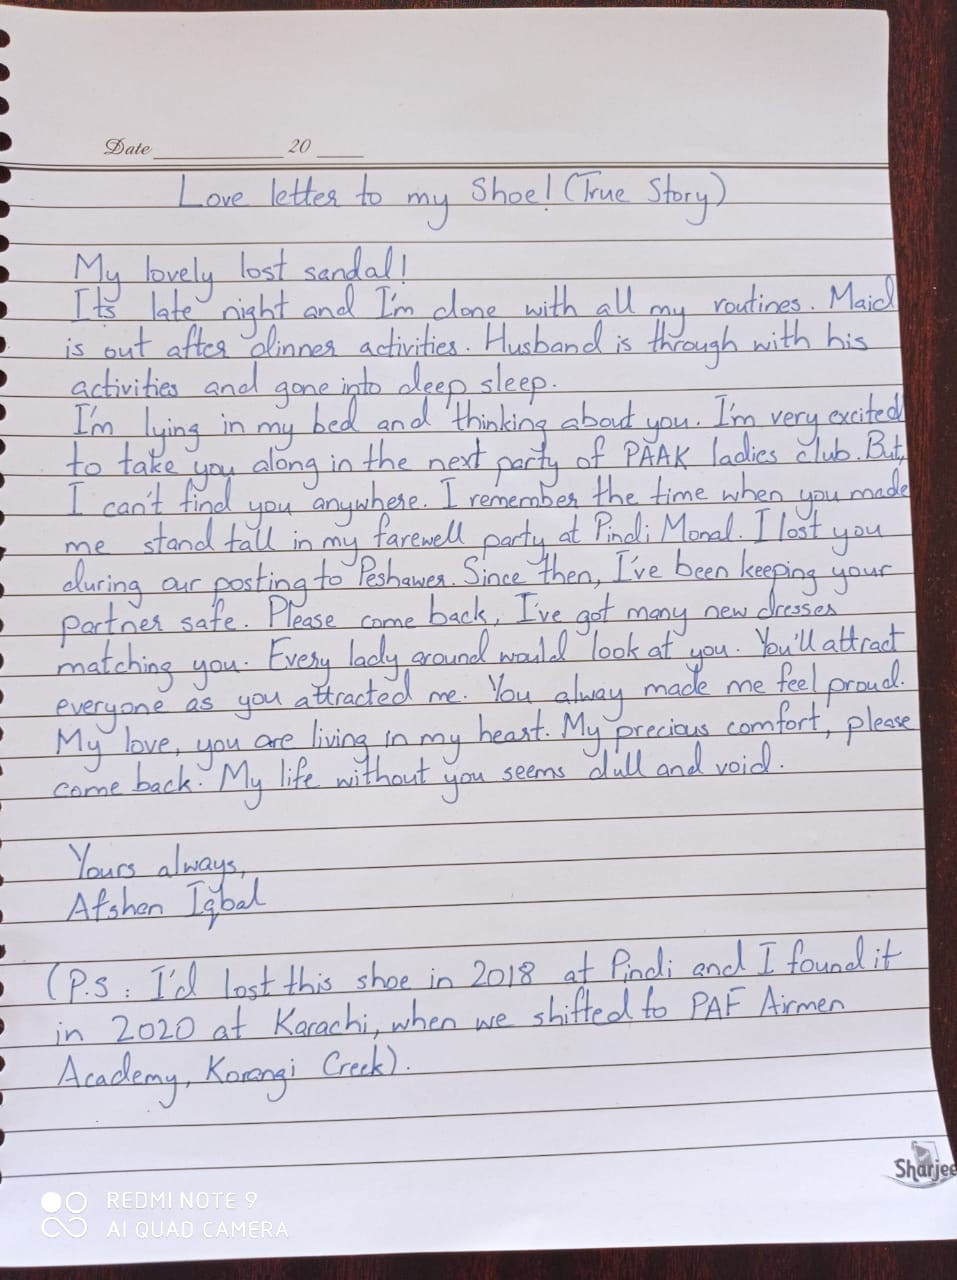 Date 20
Love letter to my Shoe! (True Story)
My lovely lost sandal!
It's late night and I'm done with all my routines. Maid
is out after dinner activities. Husband is through with his
activities and gone into deep sleep.
I'm lying in my bed and thinking about you. I'm very excited
to take you along in the next party of PAAK ladies club. But,
I can't find you anywhere. I remember the time when you made
me stand tall in my farewell party at Pindi Monal. I lost you
during our posting to Peshawer. Since then, I've been keeping your
partner safe. Please come back, I've got many new dresses
matching you. Every lady around would look at you. You'll attract
everyone as you attracted me. You alway made me feel proud.
My love, you are living in my heart. My precious comfort, please
come back. My life without you seems dull and void.
Yours always,
Afshan Iqbal
(P.S: I'd lost this shoe in 2018 at Pindi and I found it
in 2020 at Karachi, when we shifted to PAF Airmen
Academy, Korangi Creek).
Sharjee
REDMI NOTE 9
AI QUAD CAMERA